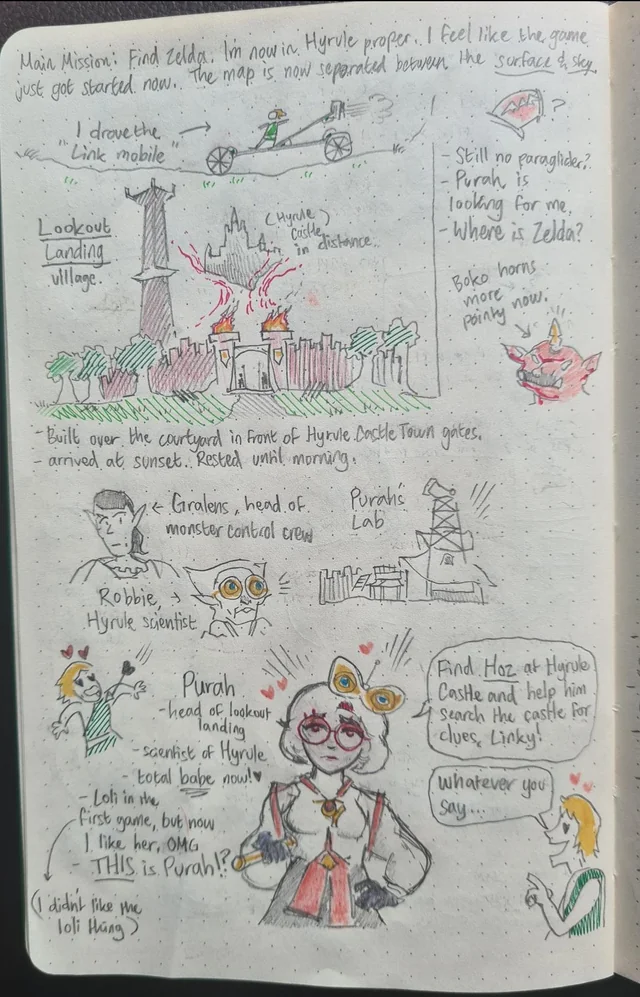 Main Mission: Find Zelda. Im now in Hyrule proper. I feel like the game
just got started now. The map is now separated between the surface & sky
I drove the
"Link mobile"
?
- Still no paraglider?
- Purah is
looking for me.
- Where is Zelda?
Lookout
Landing
village.
(Hyrule)
Castle
in distance.
Boko horns
more
pointy now.
- Built over the courtyard in front of Hyrule Castle Town gates.
- arrived at sunset. Rested until morning.
Gralens, head of
monster control crew
Purah's
Lab
Robbie,
Hyrule scientist
Purah
- head of lookout
landing
- scientist of Hyrule
- total babe now!♥
- Loli in the
first game, but now
I like her, OMG
- THIS is Purah!?
(I didn't like the
loli thing)
Find Hoz at Hyrule
Castle and help him
search the castle for
clues, Linky!
Whatever you
say...